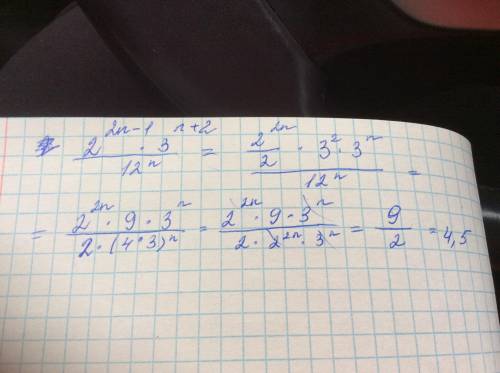 2^{2n-1} · 3^{n+2} / 12^n = (2^{2n}/2 · 3^2 · 3^n) / 12^n =
= 2^{2n} · 9 · 3^n / 2 · (4 · 3)^n = 2^{2n} · 9 · 3^n / 2 · 2^{2n} · 3^n = 9/2 = 4,5